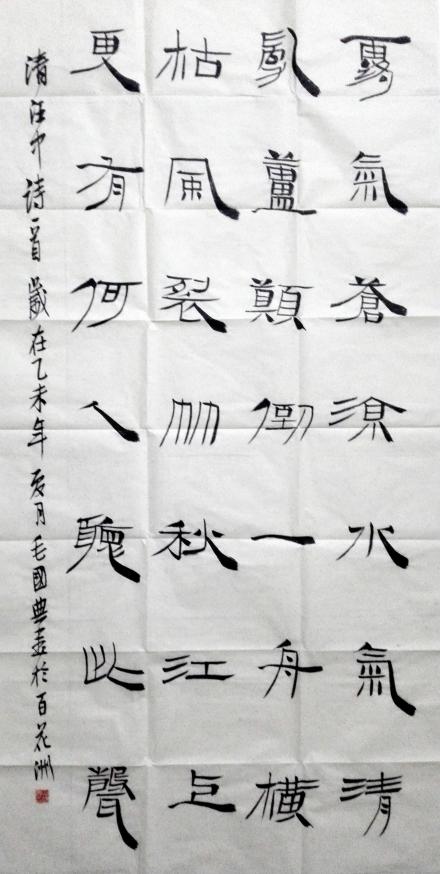 露氣蒼涼水氣清
亂蘆顛倒一舟橫
枯風裂竹秋江上
更有何人聽此聲
清汪中詩一首歲在乙未年月毛國典書於百花洲